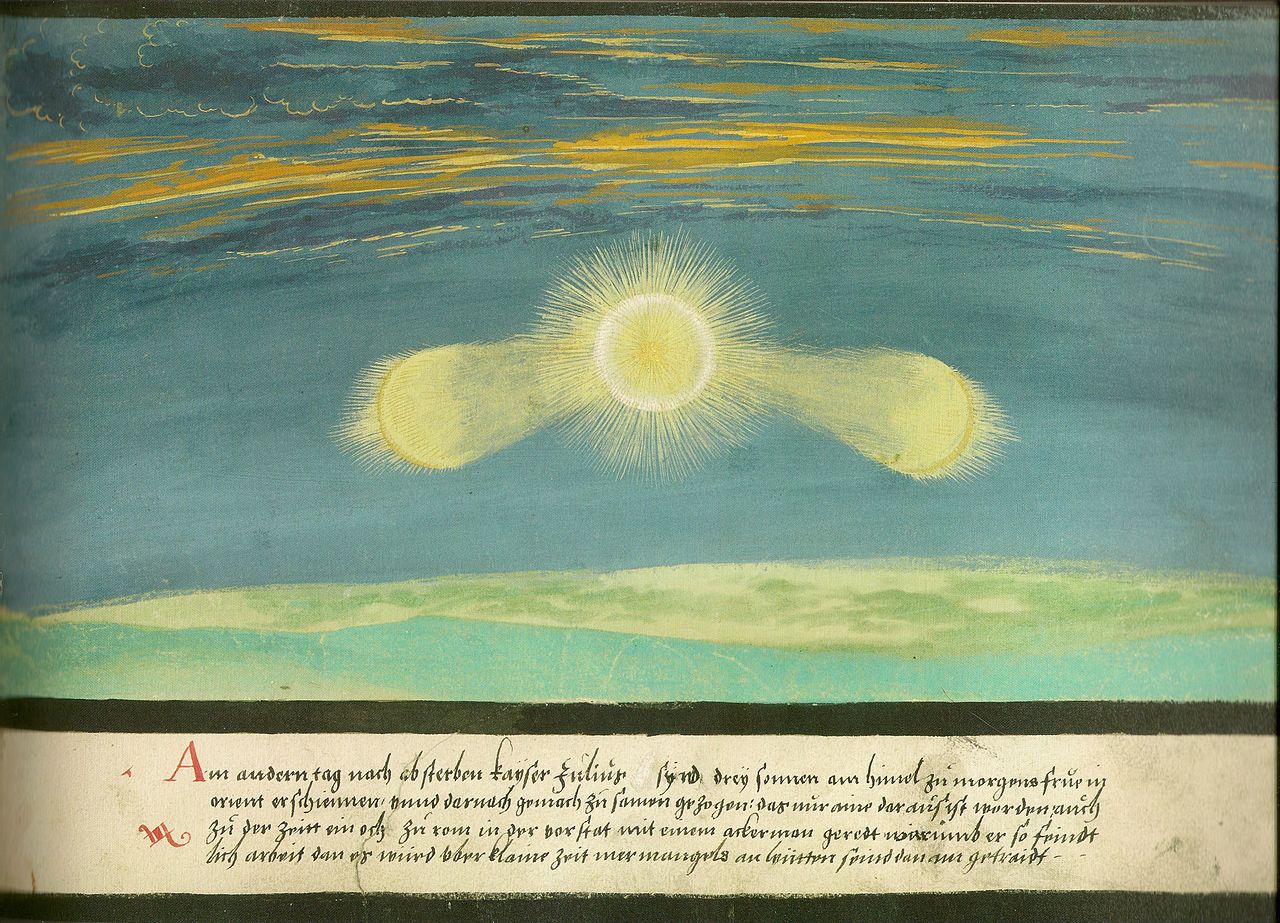 Am andern tag nach absterben kayser Julius synd drey sonnen am himel zu morgens frue in
orient erschiennen, vnnd darnach gemach zu samen gezogen: das nur aine dar auß ist worden, auch
zu der zeitt ein ochs zu rom in der vorstat mit einem ackerman geredt warumb er so feindt
lich arbeit dan es würd vber klaine zeit mer mangels an leütten seind dan am getraidt